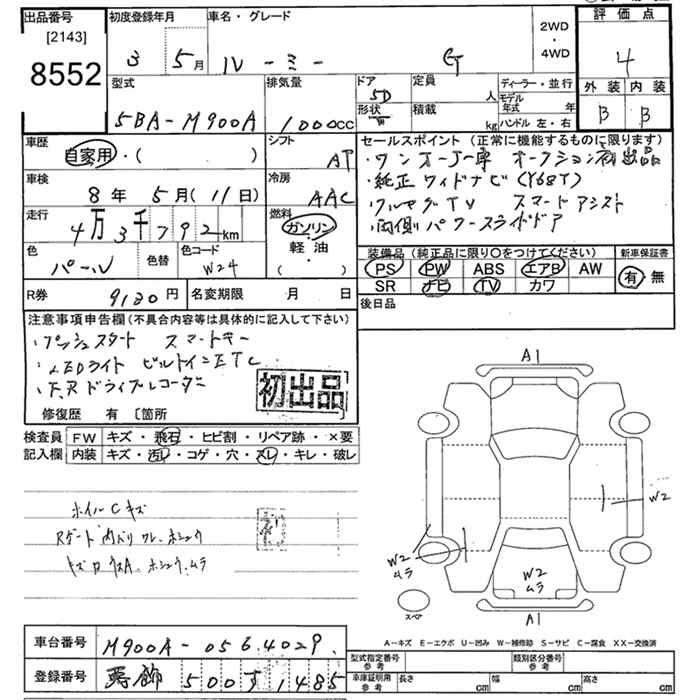 出品番号
[2143]
8552
初度登録年月
3 5月
車名・グレード
ルーミー G
2WD
・
4WD
評価点
4
外装 内装
B B
型式
5BA-M900A
排気量
1000cc
ドア
5D
形状
定員
人
積載
kg
ディーラー・並行
モデル年式 年
ハンドル 左・右
車歴
自家用・( )
シフト
AT
車検
8年 5月(11日)
冷房
AAC
走行
4万3千792km
燃料
ガソリン
・
軽油
( )
色
パール
色替
色コード
W24
R券
9130円
名変期限 月 日
セールスポイント(正常に機能するものに限ります)
・ワンオーナー車 オークション初出品
・純正ワイドナビ(Y68T)
・フルセグTV スマートアシスト
・両側パワースライドドア
装備品(純正品に限り〇をつけてください)
PS PW ABS エアB AW
SR ナビ TV カワ
新車保証書
有 無
後日品
注意事項申告欄(不具合内容等は具体的に記入して下さい)
・プッシュスタート スマートキー
・LEDライト ビルトインETC
・F.Rドライブレコーダー
初出品
修復歴 有 〔箇所
検査員記入欄
FW キズ・飛石・ヒビ割・リペア跡・×要
内装 キズ・汚レ・コゲ・穴・スレ・キレ・破レ
ホイルCキズ
Rゲート内ヘリ
A1
W2
W2
ムラ
W2
ムラ
A1
スペア
A-キズ E-エクボ U-凹み W-補修跡 S-サビ C-腐食 XX-交換済
車台番号
M900A-0564029
登録番号
500す1485
型式指定番号
参考
類別区分番号
参考
車庫証明用
参考
長さ cm
幅 cm
高さ cm